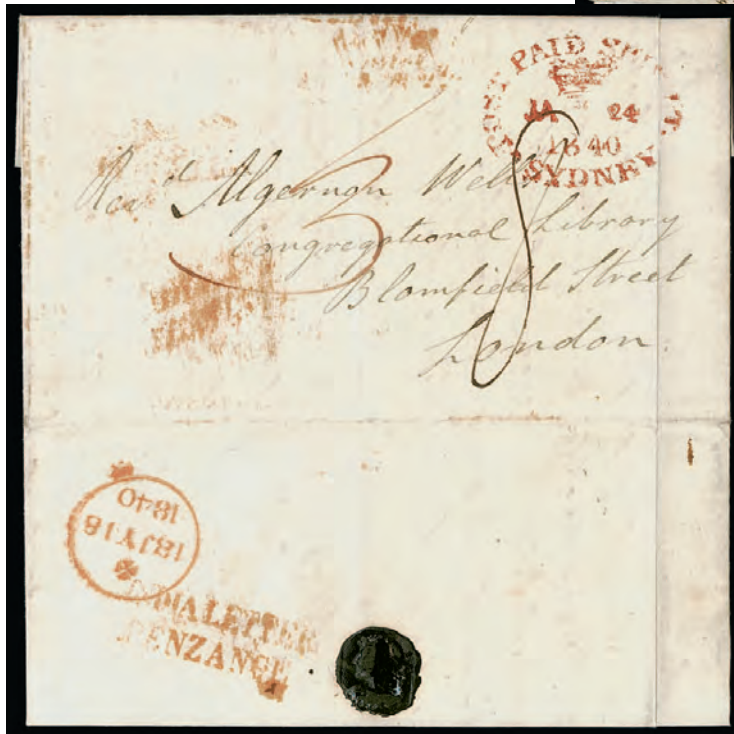 POST PAID SHIP LT
JA 24
1840
SYDNEY
Revd Algernon Wells
Congregational Library
Blomfield Street
London.
3
8
18JY18
1840
INDIA LETTER
PENZANCE